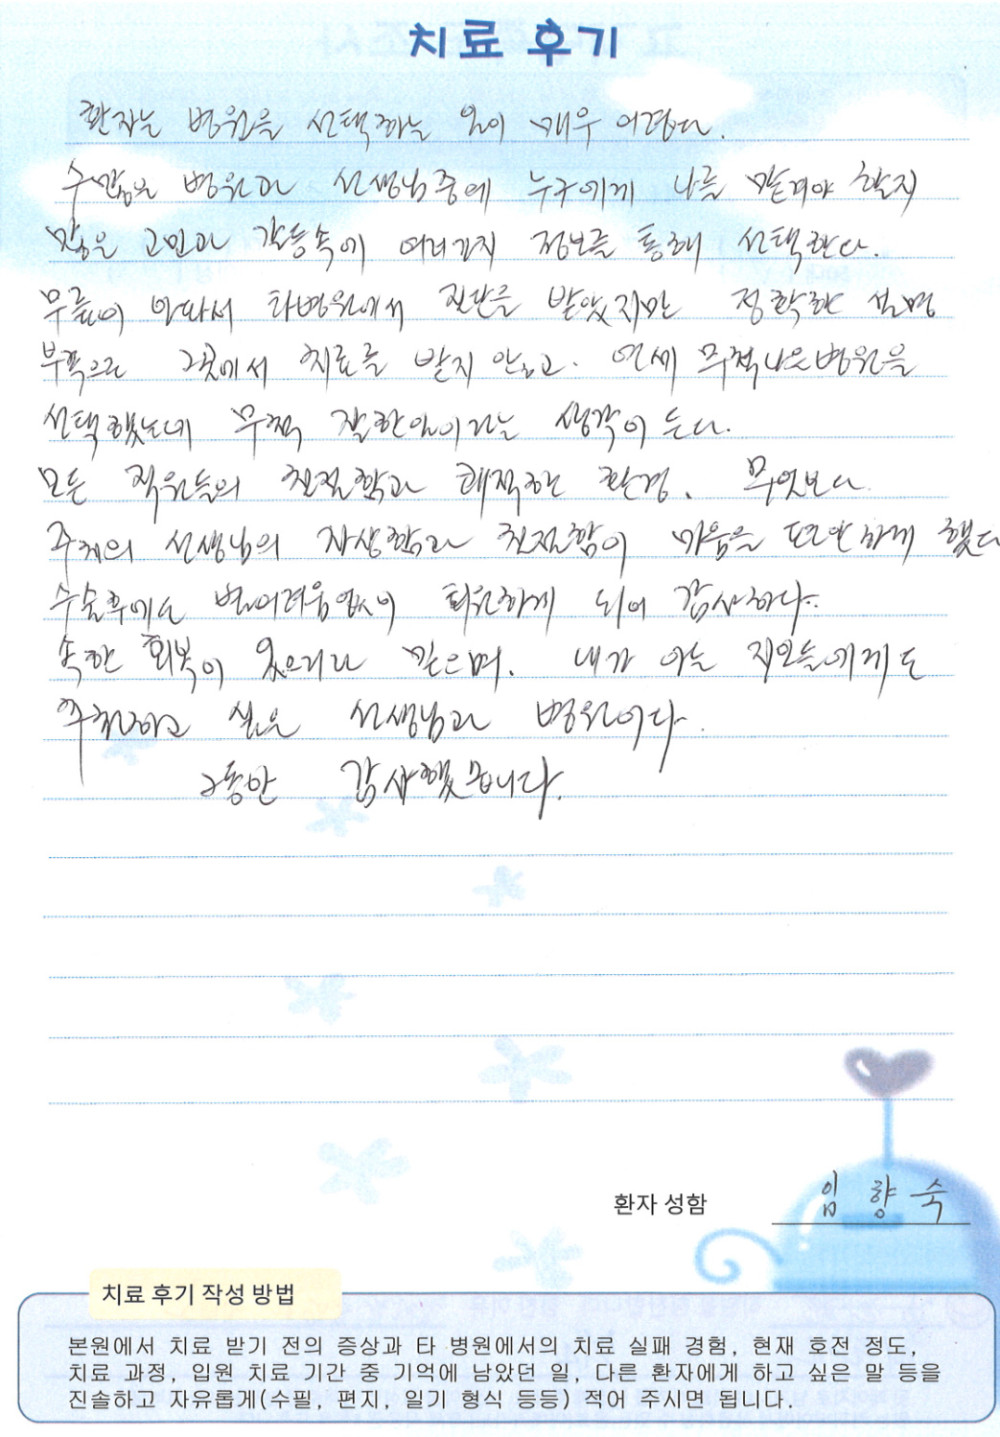 치료 후기
환자는 병원을 선택하는 일이 매우 어렵다.
수많은 병원과 선생님중에 누구에게 나를 맡겨야 할지
많은 고민과 갈등속에 여러가지 정보를 통해 선택한다.
무릎이 아파서 타병원에서 진단을 받았지만 정확한 설명
부족으로 그곳에서 치료를 받지 않고. 연세 무척나은병원을
선택했는데 무척 잘한일이라는 생각이 든다.
모든 직원들의 친절함과 쾌적한 환경. 무엇보다
주치의 선생님의 자상함과 친절함이 마음을 편안하게 했다
수술후에도 별어려움없이 퇴원하게 되어 감사하다.
속한 회복이 있으리라 믿으며. 내가 아는 지인들에게도
추천하고 싶은 선생님과 병원이다.
그동안 감사했습니다.
환자 성함 임향숙
치료 후기 작성 방법
본원에서 치료 받기 전의 증상과 타 병원에서의 치료 실패 경험, 현재 호전 정도,
치료 과정, 입원 치료 기간 중 기억에 남았던 일, 다른 환자에게 하고 싶은 말 등을
진솔하고 자유롭게(수필, 편지, 일기 형식 등등) 적어 주시면 됩니다.